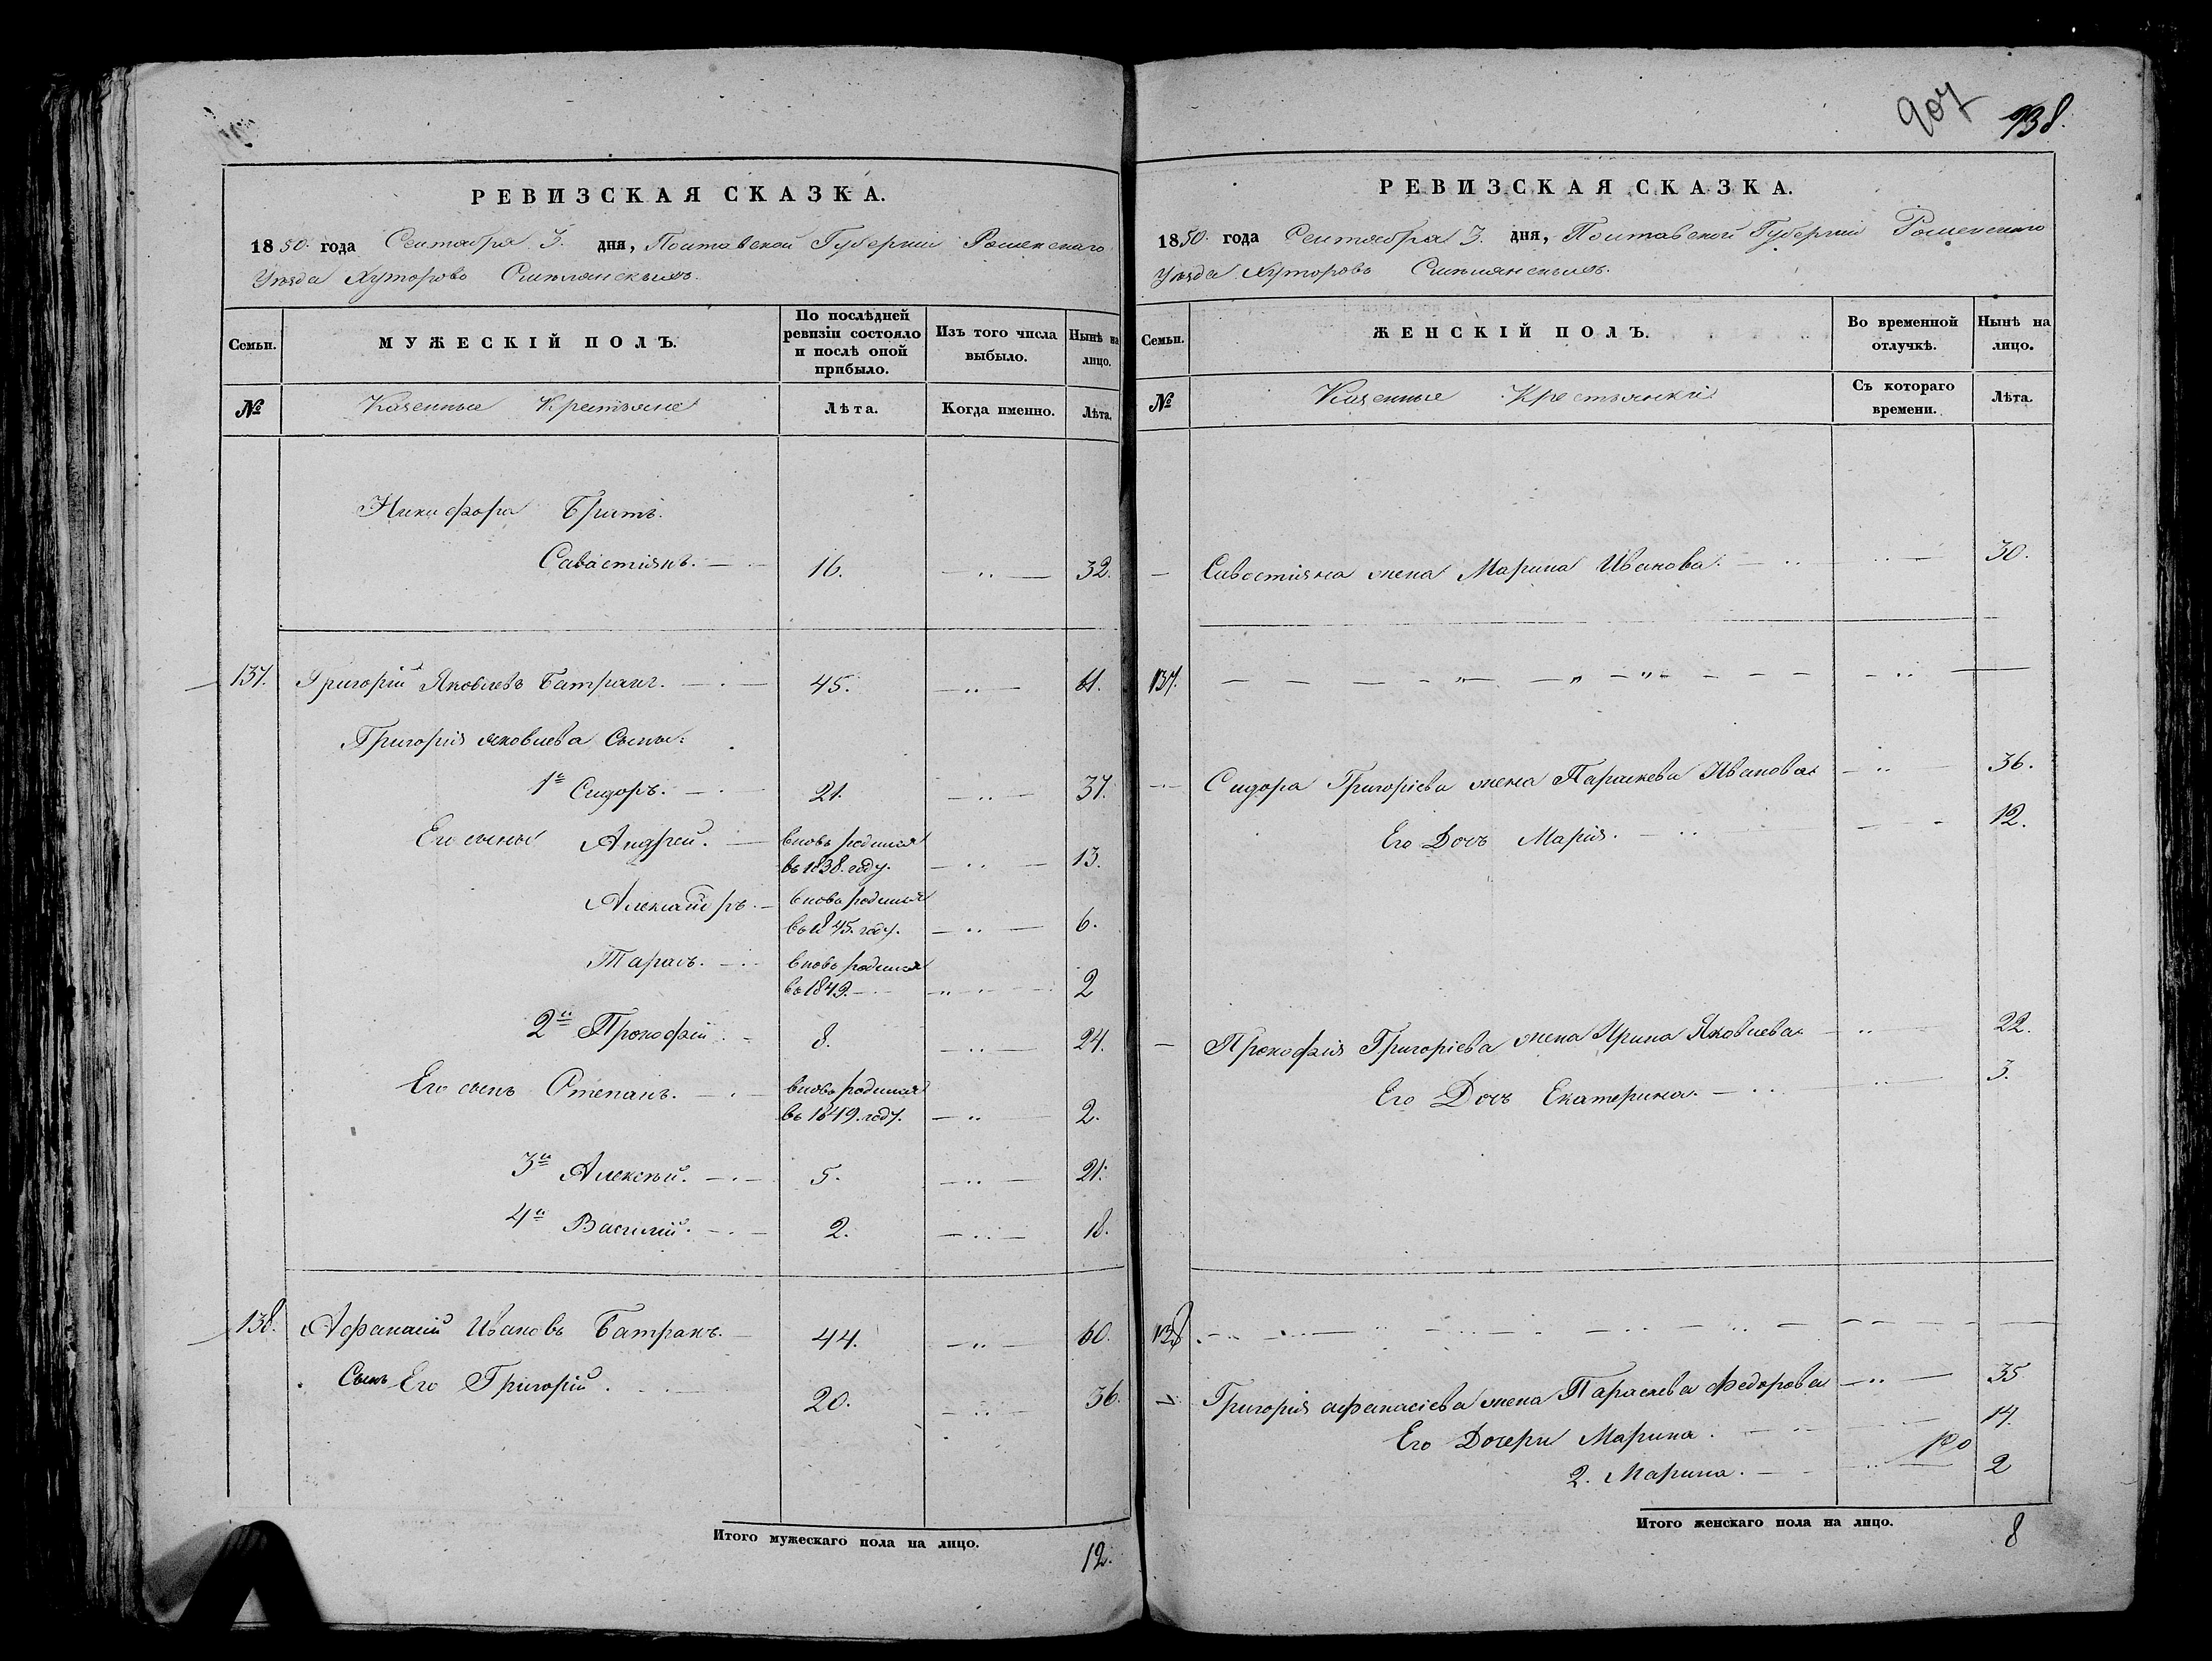 907 938.
РЕВИЗСКАЯ СКАЗКА.
1850 года Сентября 3. дня, Полтавской Губерніи Роменскаго
Уезда Хуторовъ
Семьи. МУЖЕСКІЙ ПОЛЪ. По послѣдней ревизіи состояло и послѣ оной прибыло. Изъ того числа выбыло. Нынѣ на лицо.
№ Казенные Крестьяне Лѣта. Когда именно. Лѣта.
Никифора Братъ.
Савастіянъ. 16. 32.
137. Григорій Яковлевъ Батракъ. 45. 61.
Григорія Яковлева Сыны:
1й Сидоръ. 21. 37.
Его сыны Андрей. вновь родился
въ 1838. году. 13.
Александръ. вновь родился
въ 1845. году. 6.
Тарасъ. вновь родился
въ 1849. 2
2й Прокофій. 8. 24.
Его сынъ Степанъ. вновь родился
въ 1849. году. 2.
3й Алексѣй. 5. 21.
4й Василій. 2. 18.
138. Афанасій Ивановъ Батракъ. 44. 60.
Сынъ Его Григорій. 20. 36.
Итого мужескаго пола на лицо. 12.
РЕВИЗСКАЯ СКАЗКА.
1850 года Сентября 3. дня, Полтавской Губерніи Роменскаго
Уезда Хуторовъ
Семьи. ЖЕНСКІЙ ПОЛЪ. Во временной отлучкѣ. Нынѣ на лицо.
№ Казенные Крестьянки Съ котораго времени. Лѣта.
Савостіяна жена Марина Иванова. 30.
137.
Сидора Григоріева жена Параскева Иванова 36.
Его Дочь Марія. 12.
Прокофія Григоріева жена Ирина Яковлева 22.
Его Дочь Екатерина. 3.
138.
Григорія афанасіева жена Параскева Федорова 35
Его Дочери Марина. 14.
2. Марина. 2
Итого женскаго пола на лицо. 8